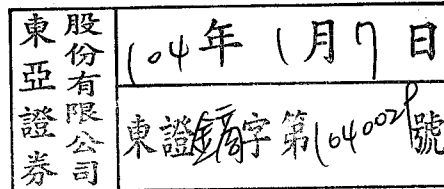 東亞證券
股份有限公司
104年1月7日
東證鎘字第1040029號